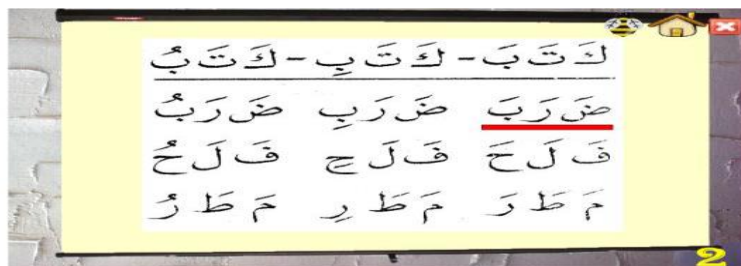 كَ تَ بَ - كَ تَ بِ - كَ تَ بُ
ضَ رَ بَ ضَ رَ بِ ضَ رَ بُ
فَ لَ حَ فَ لَ حِ فَ لَ حُ
مَ طَ رَ مَ طَ رِ مَ طَ رُ
2